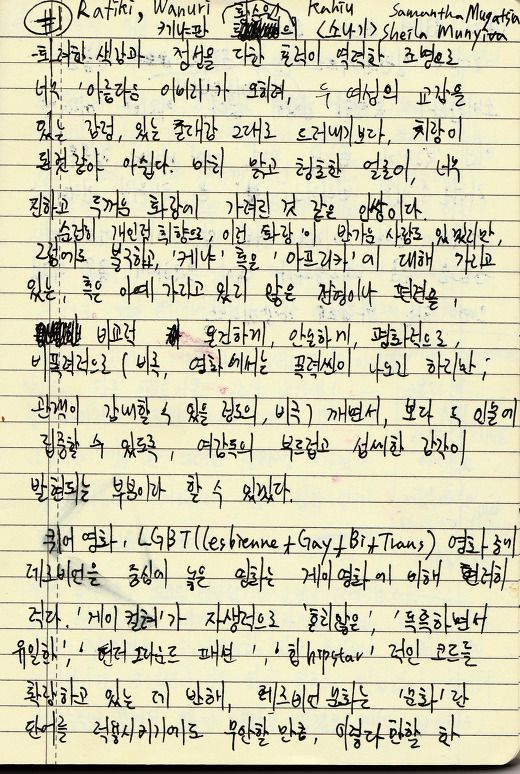 #1 Rafiki, Wanuri Kahiu Samantha Mugatsia
케냐판 황순원의 <소나기> Sheila Munyiva
화려한 색감과 정성을 다한 흔적이 역력한 조명으로
너무 '아름다운 이미지'가 오히려, 두 여성의 교감을
있는 감정, 있는 존재감 그대로 드러내기보다, 치장이
된 것 같아 아쉽다. 마치 맑고 청초한 얼굴이, 너무
진하고 두꺼운 화장에 가려진 것 같은 인상이다.
순전히 개인적 취향으로, 이런 화장이 반가운 사람도 있겠지만,
그럼에도 불구하고, '케냐' 혹은 '아프리카'에 대해 가지고
있는, 혹은 아예 가지고 있지 않은 전형이나 편견을,
비교적 온건하게, 안순하게, 평화적으로,
비폭력적으로 (비록, 영화에서는 폭력씬이 나오긴 하지만;
관객이 감내할 수 있을 정도의, 비록) 깨면서, 보다 두 인물에
집중할 수 있도록, 여감독의 부드럽고 섬세한 감각이
발현되는 부분이라 할 수 있겠다.
퀴어 영화, LGBT(lesbienne+Gay+Bi+Trans) 영화 중에
레즈비언을 중심에 놓은 영화는 게이영화에 비해 현저히
적다. '게이컬쳐'가 자생적으로 '흔치않은', '독특하면서
유일한', '언더그라운드 패션', '힙hipstar'적인 코드를
확장하고 있는 데 반해, 레즈비언 문화는 '문화'란
단어를 적용시키기에도 무안할 만큼, 이렇다 할 한